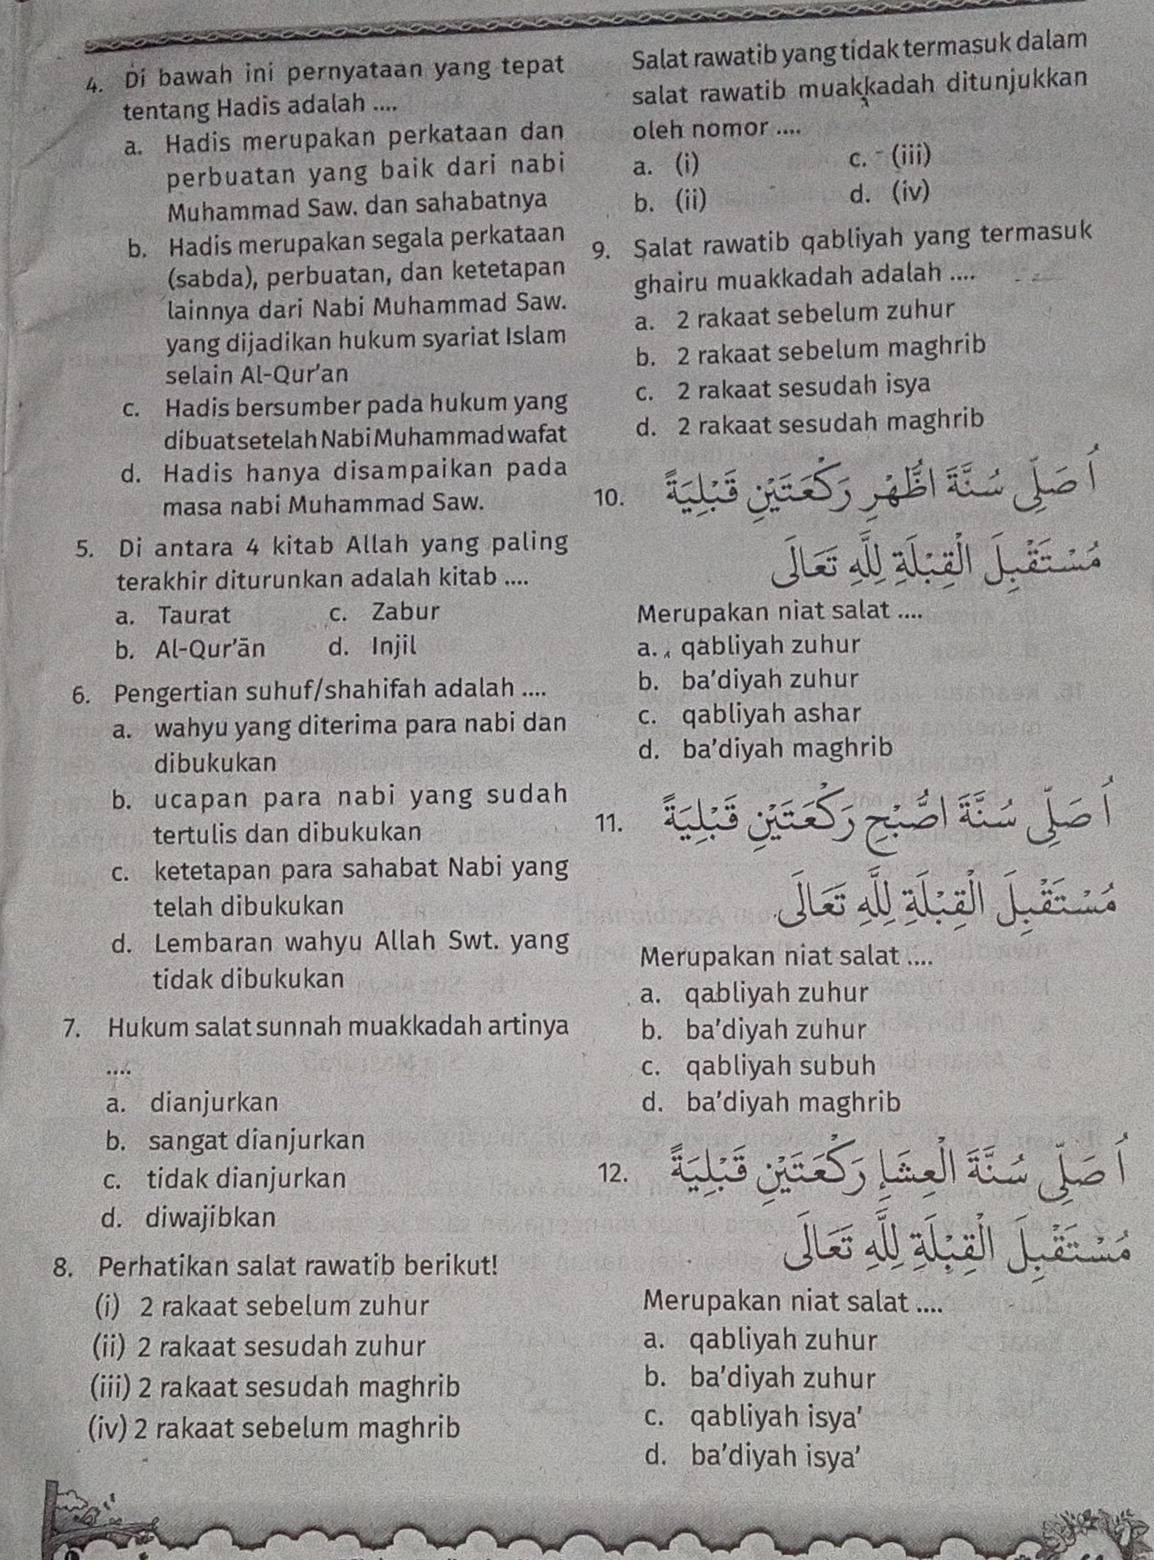 4. Di bawah ini pernyataan yang tepat
tentang Hadis adalah ....
a. Hadis merupakan perkataan dan
perbuatan yang baik dari nabi
Muhammad Saw. dan sahabatnya
b. Hadis merupakan segala perkataan
(sabda), perbuatan, dan ketetapan
lainnya dari Nabi Muhammad Saw.
yang dijadikan hukum syariat Islam
selain Al-Qur'an
c. Hadis bersumber pada hukum yang
dibuat setelah Nabi Muhammad wafat
d. Hadis hanya disampaikan pada
masa nabi Muhammad Saw.
5. Di antara 4 kitab Allah yang paling
terakhir diturunkan adalah kitab ....
a. Taurat c. Zabur
b. Al-Qur'ān d. Injil
6. Pengertian suhuf/shahifah adalah ....
a. wahyu yang diterima para nabi dan
dibukukan
b. ucapan para nabi yang sudah
tertulis dan dibukukan
c. ketetapan para sahabat Nabi yang
telah dibukukan
d. Lembaran wahyu Allah Swt. yang
tidak dibukukan
7. Hukum salat sunnah muakkadah artinya
....
a. dianjurkan
b. sangat dianjurkan
c. tidak dianjurkan
d. diwajibkan
8. Perhatikan salat rawatib berikut!
(i) 2 rakaat sebelum zuhur
(ii) 2 rakaat sesudah zuhur
(iii) 2 rakaat sesudah maghrib
(iv) 2 rakaat sebelum maghrib
Salat rawatib yang tidak termasuk dalam
salat rawatib muakkadah ditunjukkan
oleh nomor ....
a. (i) c. (iii)
b. (ii) d. (iv)
9. Salat rawatib qabliyah yang termasuk
ghairu muakkadah adalah ....
a. 2 rakaat sebelum zuhur
b. 2 rakaat sebelum maghrib
c. 2 rakaat sesudah isya
d. 2 rakaat sesudah maghrib
10. اُصَلِّى سُنَّةَ الظُّهْرِ رَكْعَتَيْنِ قَبْلِيَّةً
مُسْتَقْبِلَ الْقِبْلَةِ لِلّٰهِ تَعَالَى
Merupakan niat salat ....
a. qabliyah zuhur
b. ba'diyah zuhur
c. qabliyah ashar
d. ba'diyah maghrib
11. اُصَلِّى سُنَّةَ الصُّبْحِ رَكْعَتَيْنِ قَبْلِيَّةً
مُسْتَقْبِلَ الْقِبْلَةِ لِلّٰهِ تَعَالَى
Merupakan niat salat ....
a. qabliyah zuhur
b. ba'diyah zuhur
c. qabliyah subuh
d. ba'diyah maghrib
12. اُصَلِّى سُنَّةَ الْعِشَاءِ رَكْعَتَيْنِ قَبْلِيَّةً
مُسْتَقْبِلَ الْقِبْلَةِ لِلّٰهِ تَعَالَى
Merupakan niat salat ....
a. qabliyah zuhur
b. ba'diyah zuhur
c. qabliyah isya'
d. ba'diyah isya'